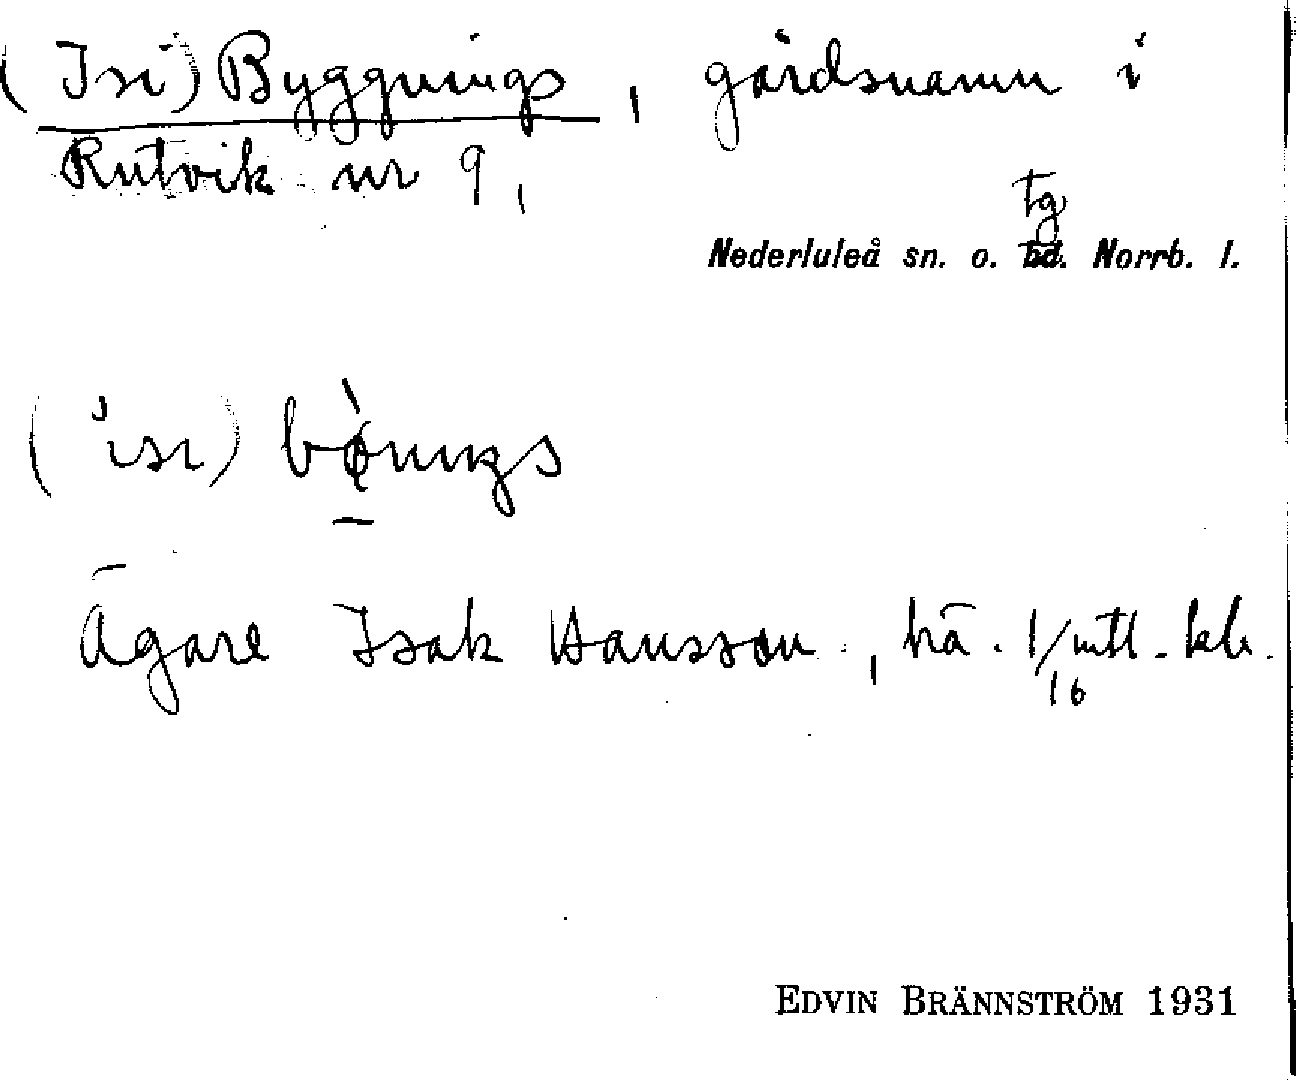 (Isi) Byggnings, gårdsnamn i
Rutvik nr 9,
Nederluleå sn. o. tg Norrb. l.
(isi)
Ägare Isak Hansson, hä. 1/16 mtl. kb.
EDVIN BRÄNNSTRÖM 1931